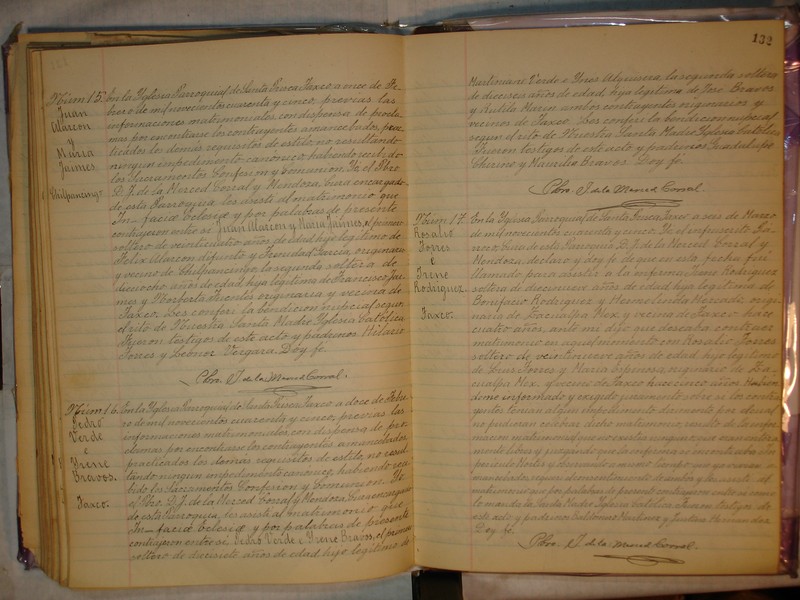 132
Núm 15.
Juan
Alarcon
y
María
Jaimes
Chilpancingo
En la Yglesia Parroquial de Santa Prisca, Taxco, a once de Fe-
brero de mil novecientos cuarenta y cinco, previas las
informaciones matrimoniales con dispensa de procla-
mas por encontrarse los contrayentes amancebados, prac-
ticados los demás requisitos de estilo, no resultando
ningun impedimento canonico, habiendo recibido
los Sacramentos Confesion y Comunion. Yo el Pbro.
D. J. de la Merced Corral y Mendoza, Cura encargado
de esta Parroquia, les asistí al matrimonio que
In facie eclesiæ y por palabras de presente
contrajeron entre sí Juan Alarcon y María Jaimes, el primero
soltero de veinticuatro años de edad hijo legítimo de
Felix Alarcon difunto y Trinidad García, originario
y vecino de Chilpancingo, la segunda soltera de
dieciocho años de edad, hija legítima de Francisco Jai-
mes y Norberta Fuentes originaria y vecina de
Taxco. Les conferí la bendicion nupcial segun
el rito de Nuestra Santa Madre Yglesia Católica
Fueron testigos de este acto y padrinos Hilario
Torres y Leonor Vergara. Doy fe.
Pbro. J. de la Merced Corral.
Núm 16.
Pedro
Verde
e
Yrene
Bravos.
Taxco.
En la Yglesia Parroquial de Santa Prisca, Taxco a doce de Febre-
ro de mil novecientos cuarenta y cinco, previas las
informaciones matrimoniales con dispensa de pro-
clamas por encontrarse los contrayentes amancebados
practicados los demás requisitos de estilo no resul-
tando ningun impedimento canonico, habiendo reci-
bido los Sacramentos Confesion y Comunion. Yo
el Pbro. D. J. de la Merced Corral y Mendoza, Cura encargado
de esta Parroquia, les asistí al matrimonio que
In facie eclesiæ y por palabras de presente
contrajeron entre sí Pedro Verde e Yrene Bravos, el primero
soltero de diecisiete años de edad, hijo legítimo de
Martiniano Verde e Ynes Alquisira, la segunda soltera
de dieciseis años de edad, hija legítima de José Bravos
y Rutila Marin ambos contrayentes originarios y
vecinos de Taxco. Les conferí la bendicion nupcial
segun el rito de Nuestra Santa Madre Yglesia Católica
Fueron testigos de este acto y padrinos Guadalupe
Chirino y Maurilio Bravos. Doy fe.
Pbro. J. de la Merced Corral.
Núm 17.
Rosalio
Torres
e
Irene
Rodriguez.
Taxco.
En la Yglesia Parroquial de Santa Prisca, Taxco a seis de Marzo
de mil novecientos cuarenta y cinco. Yo el infrascrito Pá-
rroco Cura de esta Parroquia D. J. de la Merced Corral y
Mendoza, declaro y doy fe de que en esta fecha fuí
llamado para asistir a la enferma Irene Rodriguez
soltera de diecinueve años de edad, hija legítima de
Bonifacio Rodriguez y Hermelinda Mercado, origi-
naria de Zacualpa Mex. y vecina de Taxco hace
cuatro años, ante mi dijo que deseaba contraer
matrimonio en aquel momento con Rosalio Torres
soltero de veintinueve años de edad, hijo legítimo
de Luis Torres y María Epifania, originario de Za-
cualpa Mex. y vecino de Taxco hace cinco años. Habien-
dome informado y exigido juramento sobre si los contra-
yentes tenian algun impedimento dirimente por el cual
no pudieran celebrar dicho contrato, y puesto en la infor-
macion matrimonial que no existia ninguno se encuentra
mente libres y juzgando que la enferma se encontraba en
peligro
matrimonio que por palabras de presente contrajeron entre sí como
lo manda la Santa Madre Yglesia Católica. Fueron testigos de
este acto y padrinos Martinez y Hernandez
Doy fe.
Pbro. J. de la Merced Corral.